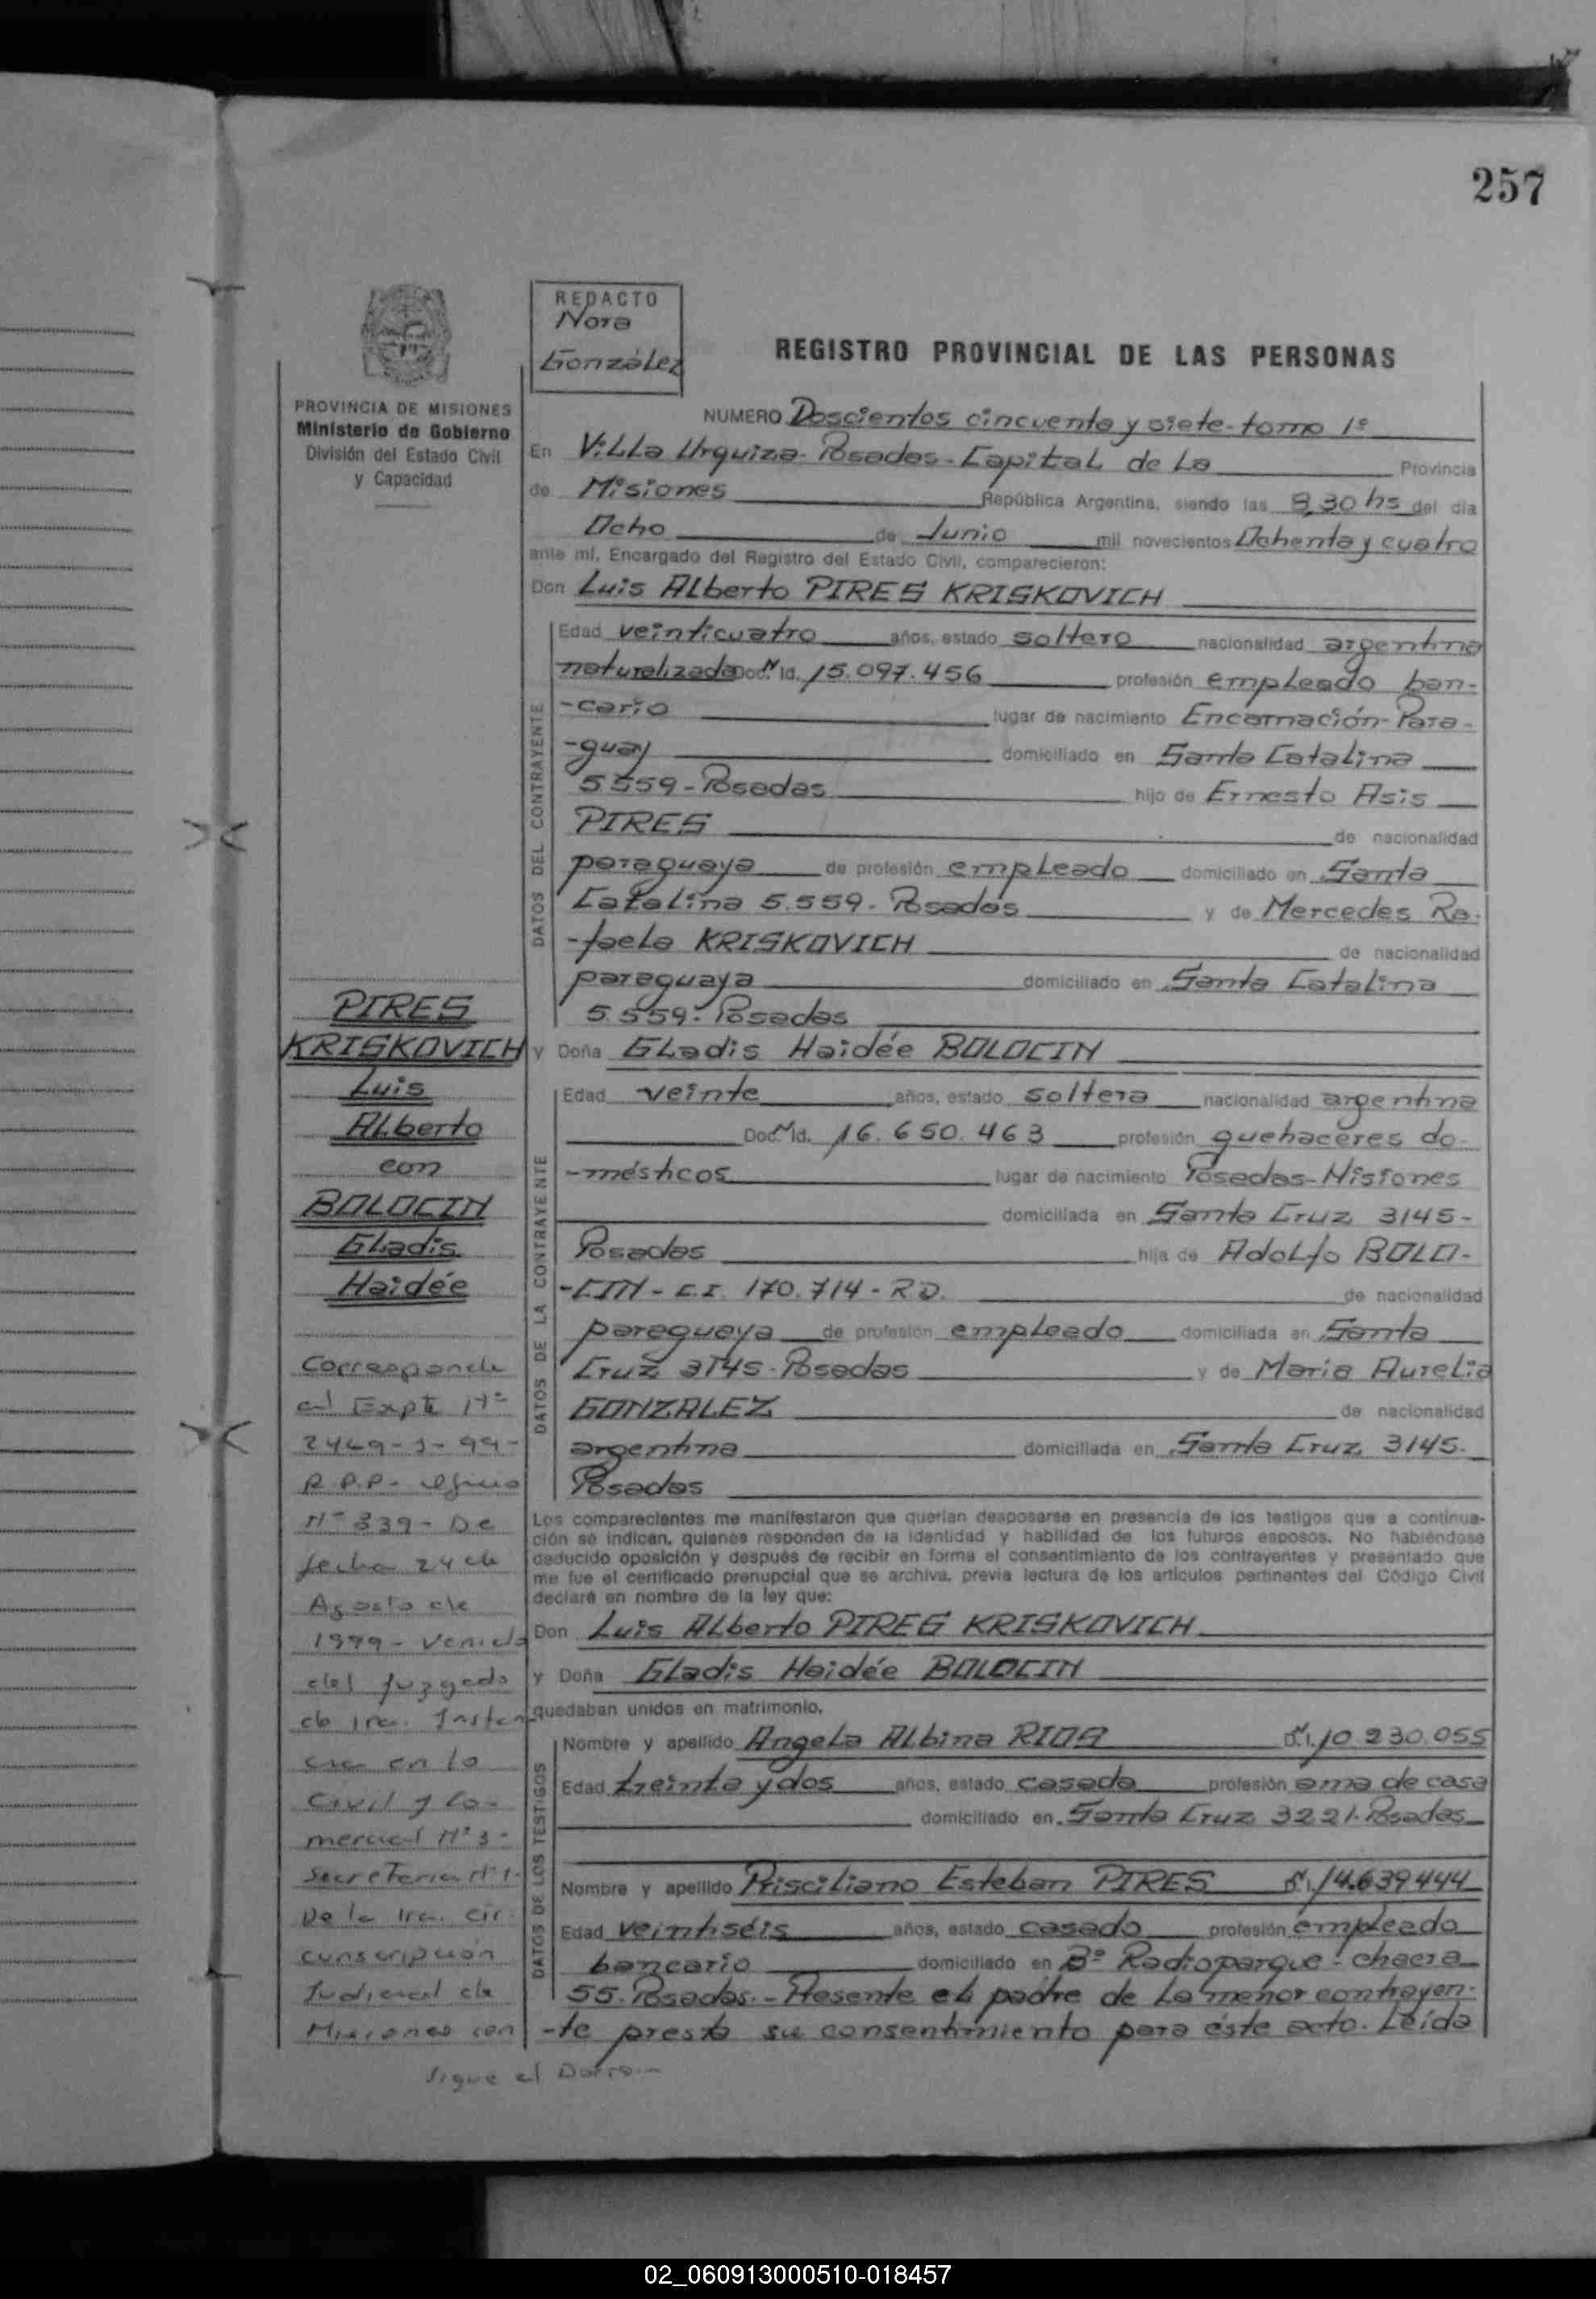 257
REDACTO
Nora
González
REGISTRO PROVINCIAL DE LAS PERSONAS
PROVINCIA DE MISIONES
Ministerio de Gobierno
División del Estado Civil
y Capacidad
NUMERO Doscientos cincuenta y siete - tomo 1º
En Villa Urquiza - Posadas - Capital de La Provincia
de Misiones República Argentina, siendo las 8,30 hs del día
Ocho de Junio mil novecientos Ochenta y cuatro
ante mí, Encargado del Registro del Estado Civil, comparecieron:
Don Luis Alberto PIRES KRISKOVICH
DATOS DEL CONTRAYENTE
Edad veinticuatro años, estado soltero nacionalidad argentina
naturalizado Doc. Nº Id. 15.097.456 profesión empleado ban-
-cario lugar de nacimiento Encarnación - Para-
-guay domiciliado en Santa Catalina
5559 - Posadas hijo de Ernesto Asis
PIRES de nacionalidad
paraguaya de profesión empleado domiciliado en Santa
Catalina 5.559 - Posadas y de Mercedes Ra-
-faela KRISKOVICH de nacionalidad
paraguaya domiciliado en Santa Catalina
5.559 - Posadas
y Doña Gladis Haidée BOLOCIN
DATOS DE LA CONTRAYENTE
Edad veinte años, estado soltera nacionalidad argentina
Doc. Nº Id. 16.650.463 profesión quehaceres do-
-mésticos lugar de nacimiento Posadas - Misiones
domiciliada en Santa Cruz 3145 -
Posadas hija de Adolfo BOLO-
-CIN - C.I. 170.714 - R.D. de nacionalidad
paraguaya de profesión empleado domiciliada en Santa
Cruz 3145 - Posadas y de Maria Aurelia
GONZALEZ de nacionalidad
argentina domiciliada en Santa Cruz 3145.
Posadas
Los comparecientes me manifestaron que querían desposarse en presencia de los testigos que a continua-
ción se indican, quienes responden de la identidad y habilidad de los futuros esposos. No habiéndose
deducido oposición y después de recibir en forma el consentimiento de los contrayentes y presentado que
me fue el certificado prenupcial que se archiva, previa lectura de los artículos pertinentes del Código Civil
declaré en nombre de la ley que:
Don Luis Alberto PIRES KRISKOVICH
y Doña Gladis Haidée BOLOCIN
quedaban unidos en matrimonio.
DATOS DE LOS TESTIGOS
Nombre y apellido Angela Albina RIOS D.N.I. 10.230.055
Edad treinta y dos años, estado casada profesión ama de casa
domiciliado en Santa Cruz 3221 - Posadas
Nombre y apellido Prisciliano Esteban PIRES D.N.I. 14.639.444
Edad veintiséis años, estado casado profesión empleado
bancario domiciliado en Bº Radioparque - chacra
55 - Posadas. - Presente el padre de la menor contrayen-
-te presta su consentimiento para éste acto. Leída
PIRES
KRISKOVICH
Luis
Alberto
con
BOLOCIN
Gladis
Haidée
Corresponde
al Expte Nº
2469-J-99-
R.P.P. - Oficio
Nº 339 - De
fecha 24 de
Agosto de
1999 - Venido
del Juzgado
de 1ra. Instan-
cia en lo
Civil y Co-
mercial Nº 3 -
Secretaria Nº 1 -
De la 1ra. cir-
cunscripción
Judicial de
Misiones con
Sigue al Dorso.-
02_060913000510-018457